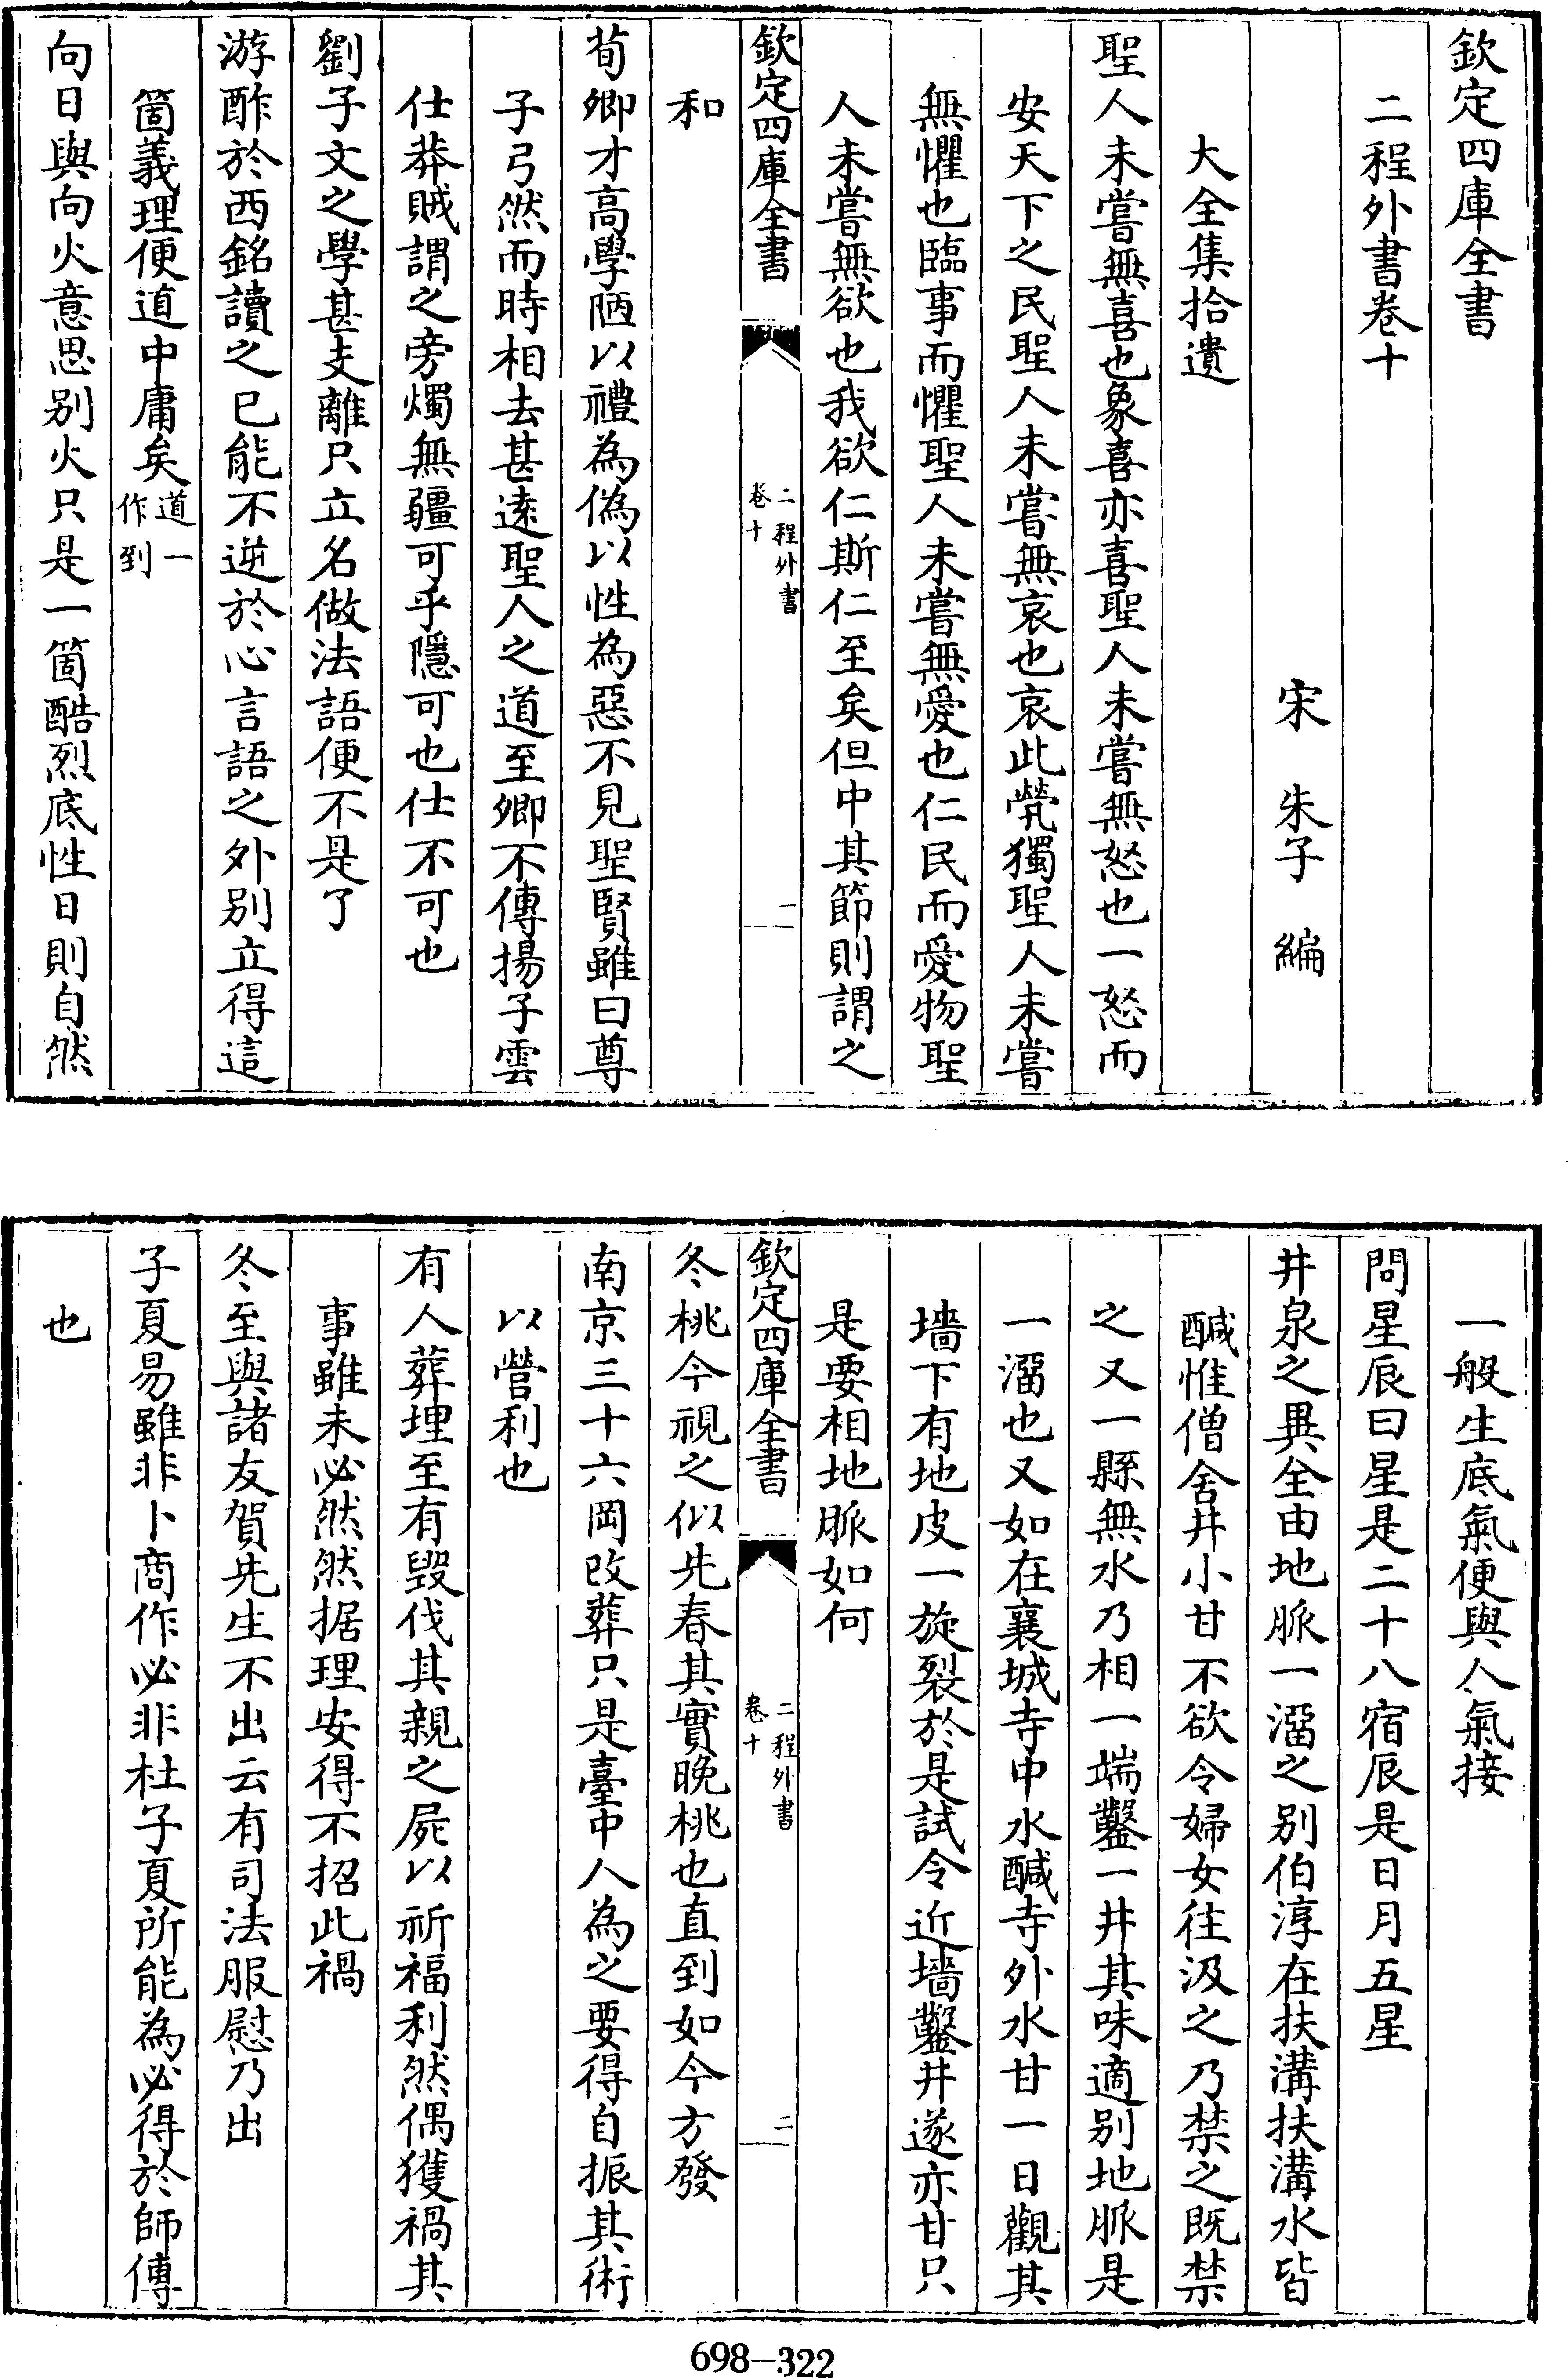 欽定四庫全書
二程外書卷十
宋　朱子　編
大全集拾遺
聖人未嘗無喜也象喜亦喜聖人未嘗無怒也一怒而
安天下之民聖人未嘗無哀也哀此煢獨聖人未嘗
無懼也臨事而懼聖人未嘗無愛也仁民而愛物聖
人未嘗無欲也我欲仁斯仁至矣但中其節則謂之
欽定四庫全書
二程外書
卷十
一
和
荀卿才高學陋以禮為偽以性為惡不見聖賢雖曰尊
子弓然而時相去甚遠聖人之道至卿不傳揚子雲
仕莽賊謂之旁燭無疆可乎隱可也仕不可也
劉子文之學甚支離只立名做法語便不是了
游酢於西銘讀之已能不逆於心言語之外别立得這
箇義理便道中庸矣道一作到
向日與向火意思别火只是一箇酷烈底性日則自然
一般生底氣便與人氣接
問星辰曰星是二十八宿辰是日月五星
井泉之異全由地脈一溜之别伯淳在扶溝扶溝水皆
醎惟僧舍井小甘不欲令婦女往汲之乃禁之既禁
之又一縣無水乃相一端鑿一井其味適别地脈是
一溜也又如在襄城寺中水醎寺外水甘一日觀其
墻下有地皮一旋裂於是試令近墻鑿井遂亦甘只
是要相地脈如何
欽定四庫全書
二程外書
卷十
二
冬桃今視之似先春其實晚桃也直到如今方發
南京三十六岡改葬只是臺中人為之要得自振其術
以營利也
有人葬埋至有毀伐其親之屍以祈福利然偶獲禍其
事雖未必然然据理安得不招此禍
冬至與諸友賀先生不出云有司法服慰乃出
子夏易雖非卜商作必非杜子夏所能為必得於師傳
也
698-322